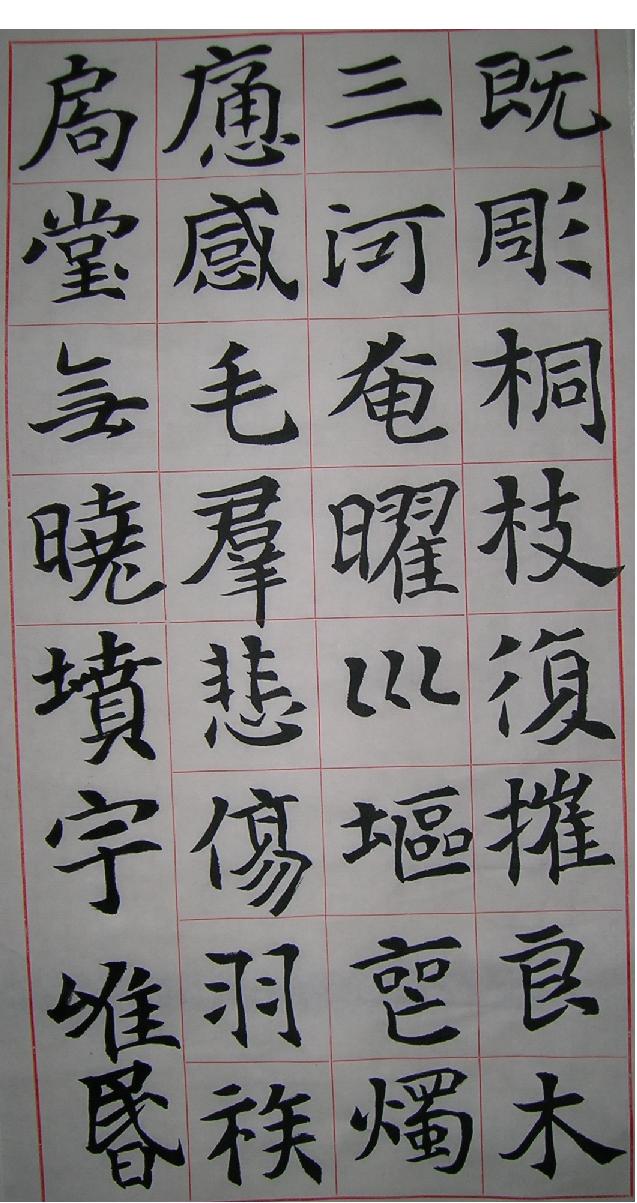 既彫桐枝復摧良木
三河奄曜巛塸喪燭
痛感毛羣悲傷羽族
扃堂無曉墳宇唯昬